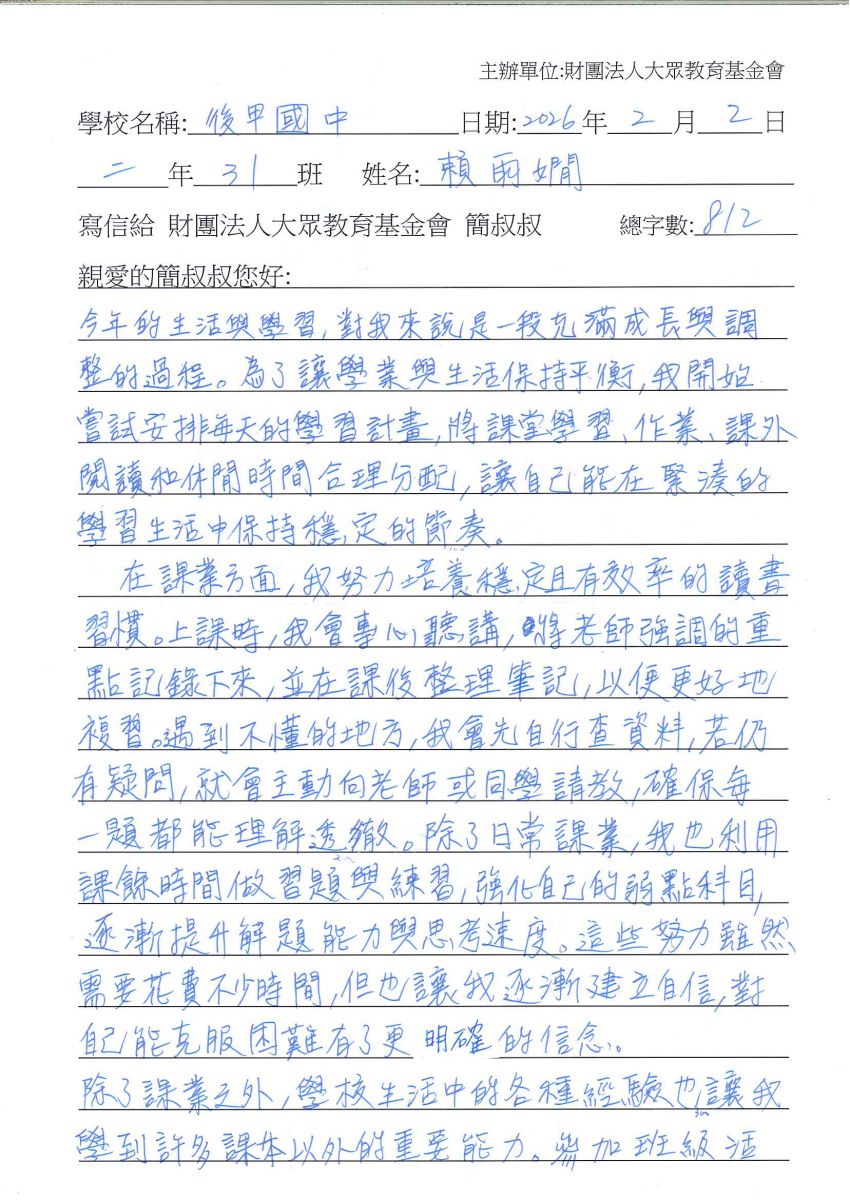 主辦單位:財團法人大眾教育基金會
學校名稱: 後甲國中 日期:2026年 2 月 2 日
二 年 31 班 姓名: 賴雨嫺
寫信給 財團法人大眾教育基金會 簡叔叔 總字數: 812
親愛的簡叔叔您好:
今年的生活與學習,對我來說是一段充滿成長與調
整的過程。為了讓學業與生活保持平衡,我開始
嘗試安排每天的學習計畫,將課堂學習、作業、課外
閱讀和休閒時間合理分配,讓自己能在緊湊的
學習生活中保持穩定的節奏。
在課業方面,我努力培養穩定且有效率的讀書
習慣。上課時,我會專心聽講,將老師強調的重
點記錄下來,並在課後整理筆記,以便更好地
複習。遇到不懂的地方,我會先自行查資料,若仍
有疑問,就會主動向老師或同學請教,確保每
一題都能理解透徹。除了日常課業,我也利用
課餘時間做習題與練習,強化自己的弱點科目,
逐漸提升解題能力與思考速度。這些努力雖然
需要花費不少時間,但也讓我逐漸建立自信,對
自己能克服困難有了更明確的信念。
除了課業之外,學校生活中的各種經驗也讓我
學到許多課本以外的重要能力。參加班級活